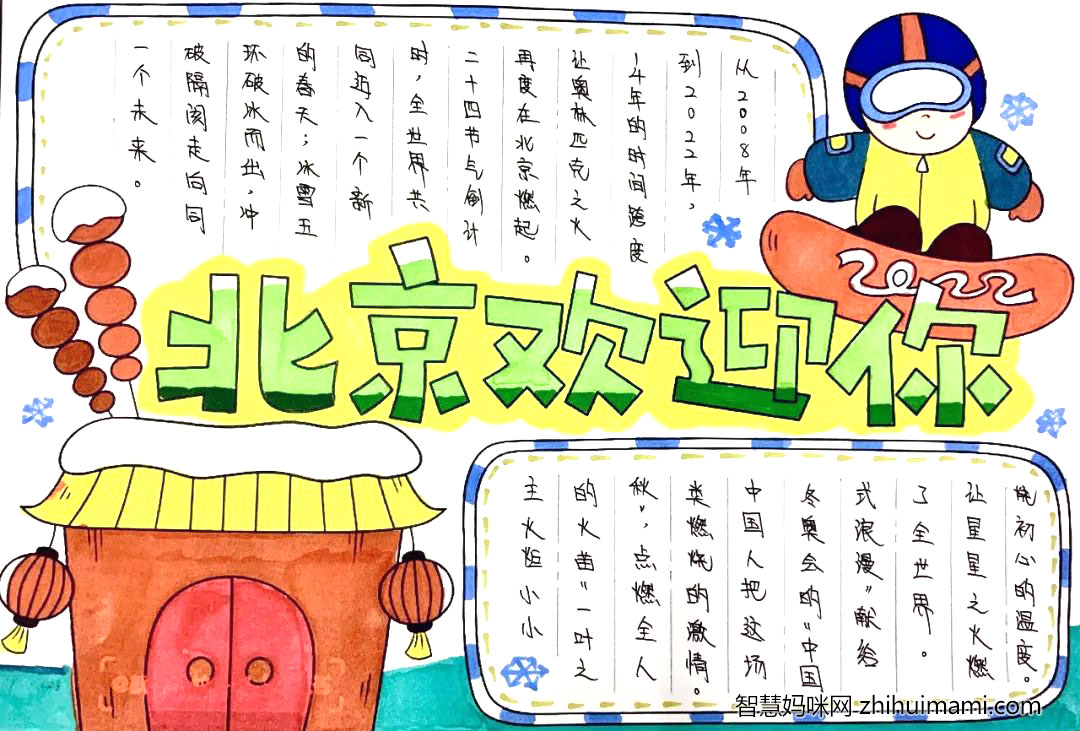 从2008年
到2022年，
14年的时间跨度
让奥林匹克之火
再度在北京燃起。
二十四节气倒计
时，全世界共
同迈入一个新
的春天；冰雪五
环破冰而出，冲
破隔阂走向同
一个未来。
2022
北京欢迎你
主火炬小小
的火苗“一叶之
秋”，点燃全人
类燃烧的激情。
中国人把这场
冬奥会的“中国
式浪漫”献给
了全世界。
让星星之火燃
烧初心的温度。
智慧妈咪网 zhihuimami.com